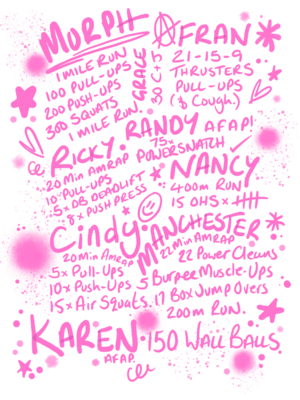 MURPH
1 MILE RUN
100 PULL-UPS
200 PUSH-UPS
300 SQUATS
1 MILE RUN.
GRACE
30 C+J
FRAN
21-15-9
THRUSTERS
PULL-UPS
(& Cough.)
RANDY AFAP!
75x
POWERSNATCH
RICKY.
20 Min AMRAP
10 x PULL-UPS
5 x DB DEADLIFT
8 x PUSH PRESS
NANCY
400m RUN
15 OHS x
Cindy.
20 min Amrap
5x Pull-Ups
10x Push-Ups
15x Air Squats.
MANCHESTER
22 Min AMRAP
22 Power Cleans
5 Burpee Muscle-Ups
17 Box Jump Overs
200m RUN.
KAREN. 150 WALL BALLS
AFAP.